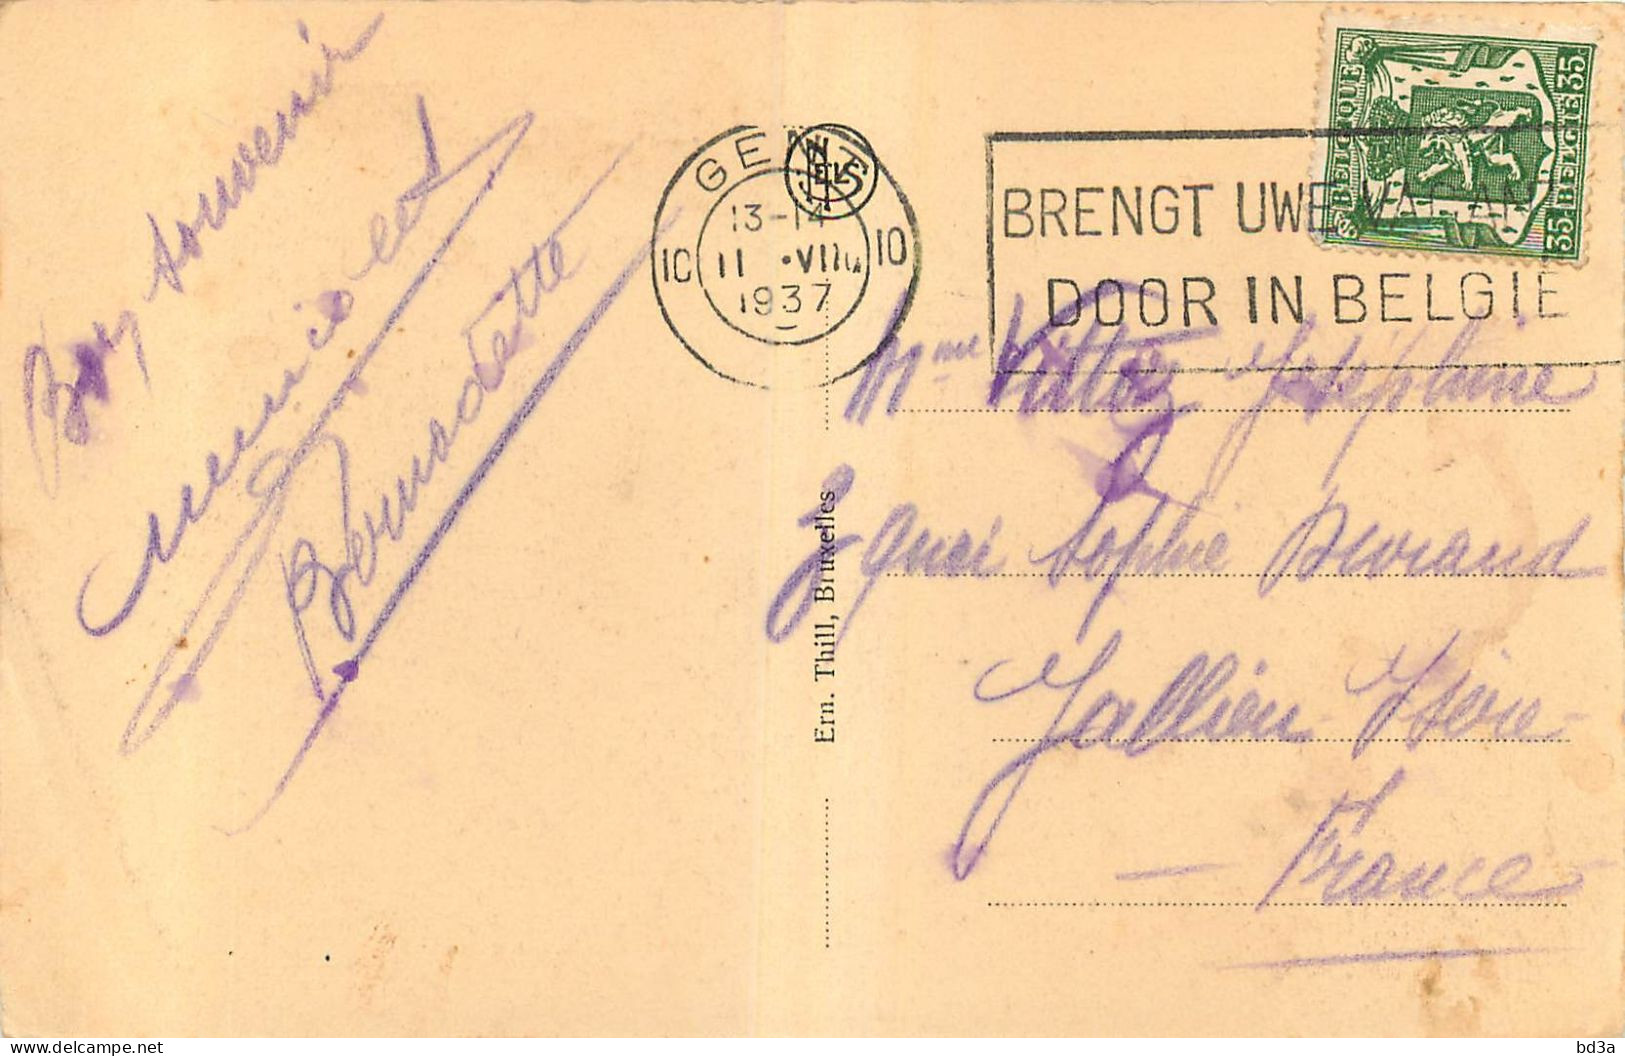 Bon souvenir
Bernadette
GENT
NELS
13-14
10 11 •VIII 10
1937
BRENGT UWE VACAN
DOOR IN BELGIE
BELGIQUE 35
35 BELGIE
Mme Vittoz Joséphine
quai Sophie Durand
Jallieu Isère
— France
Ern. Thill, Bruxelles
bd3a